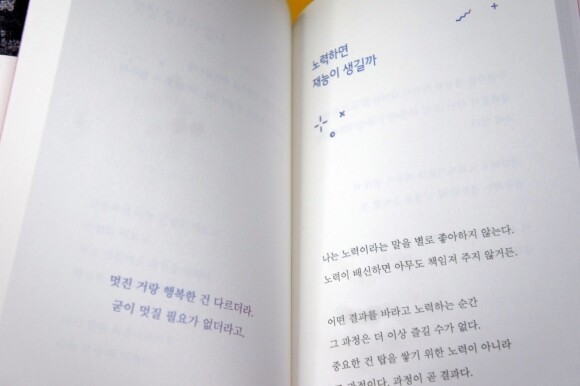 멋진 거랑 행복한 건 다르더라.
굳이 멋질 필요가 없더라고.
노력하면
재능이 생길까
나는 노력이라는 말을 별로 좋아하지 않는다.
노력이 배신하면 아무도 책임져 주지 않거든.
어떤 결과를 바라고 노력하는 순간
그 과정은 더 이상 즐길 수가 없다.
중요한 건 탑을 쌓기 위한 노력이 아니라
과정이다. 과정이 곧 결과다.